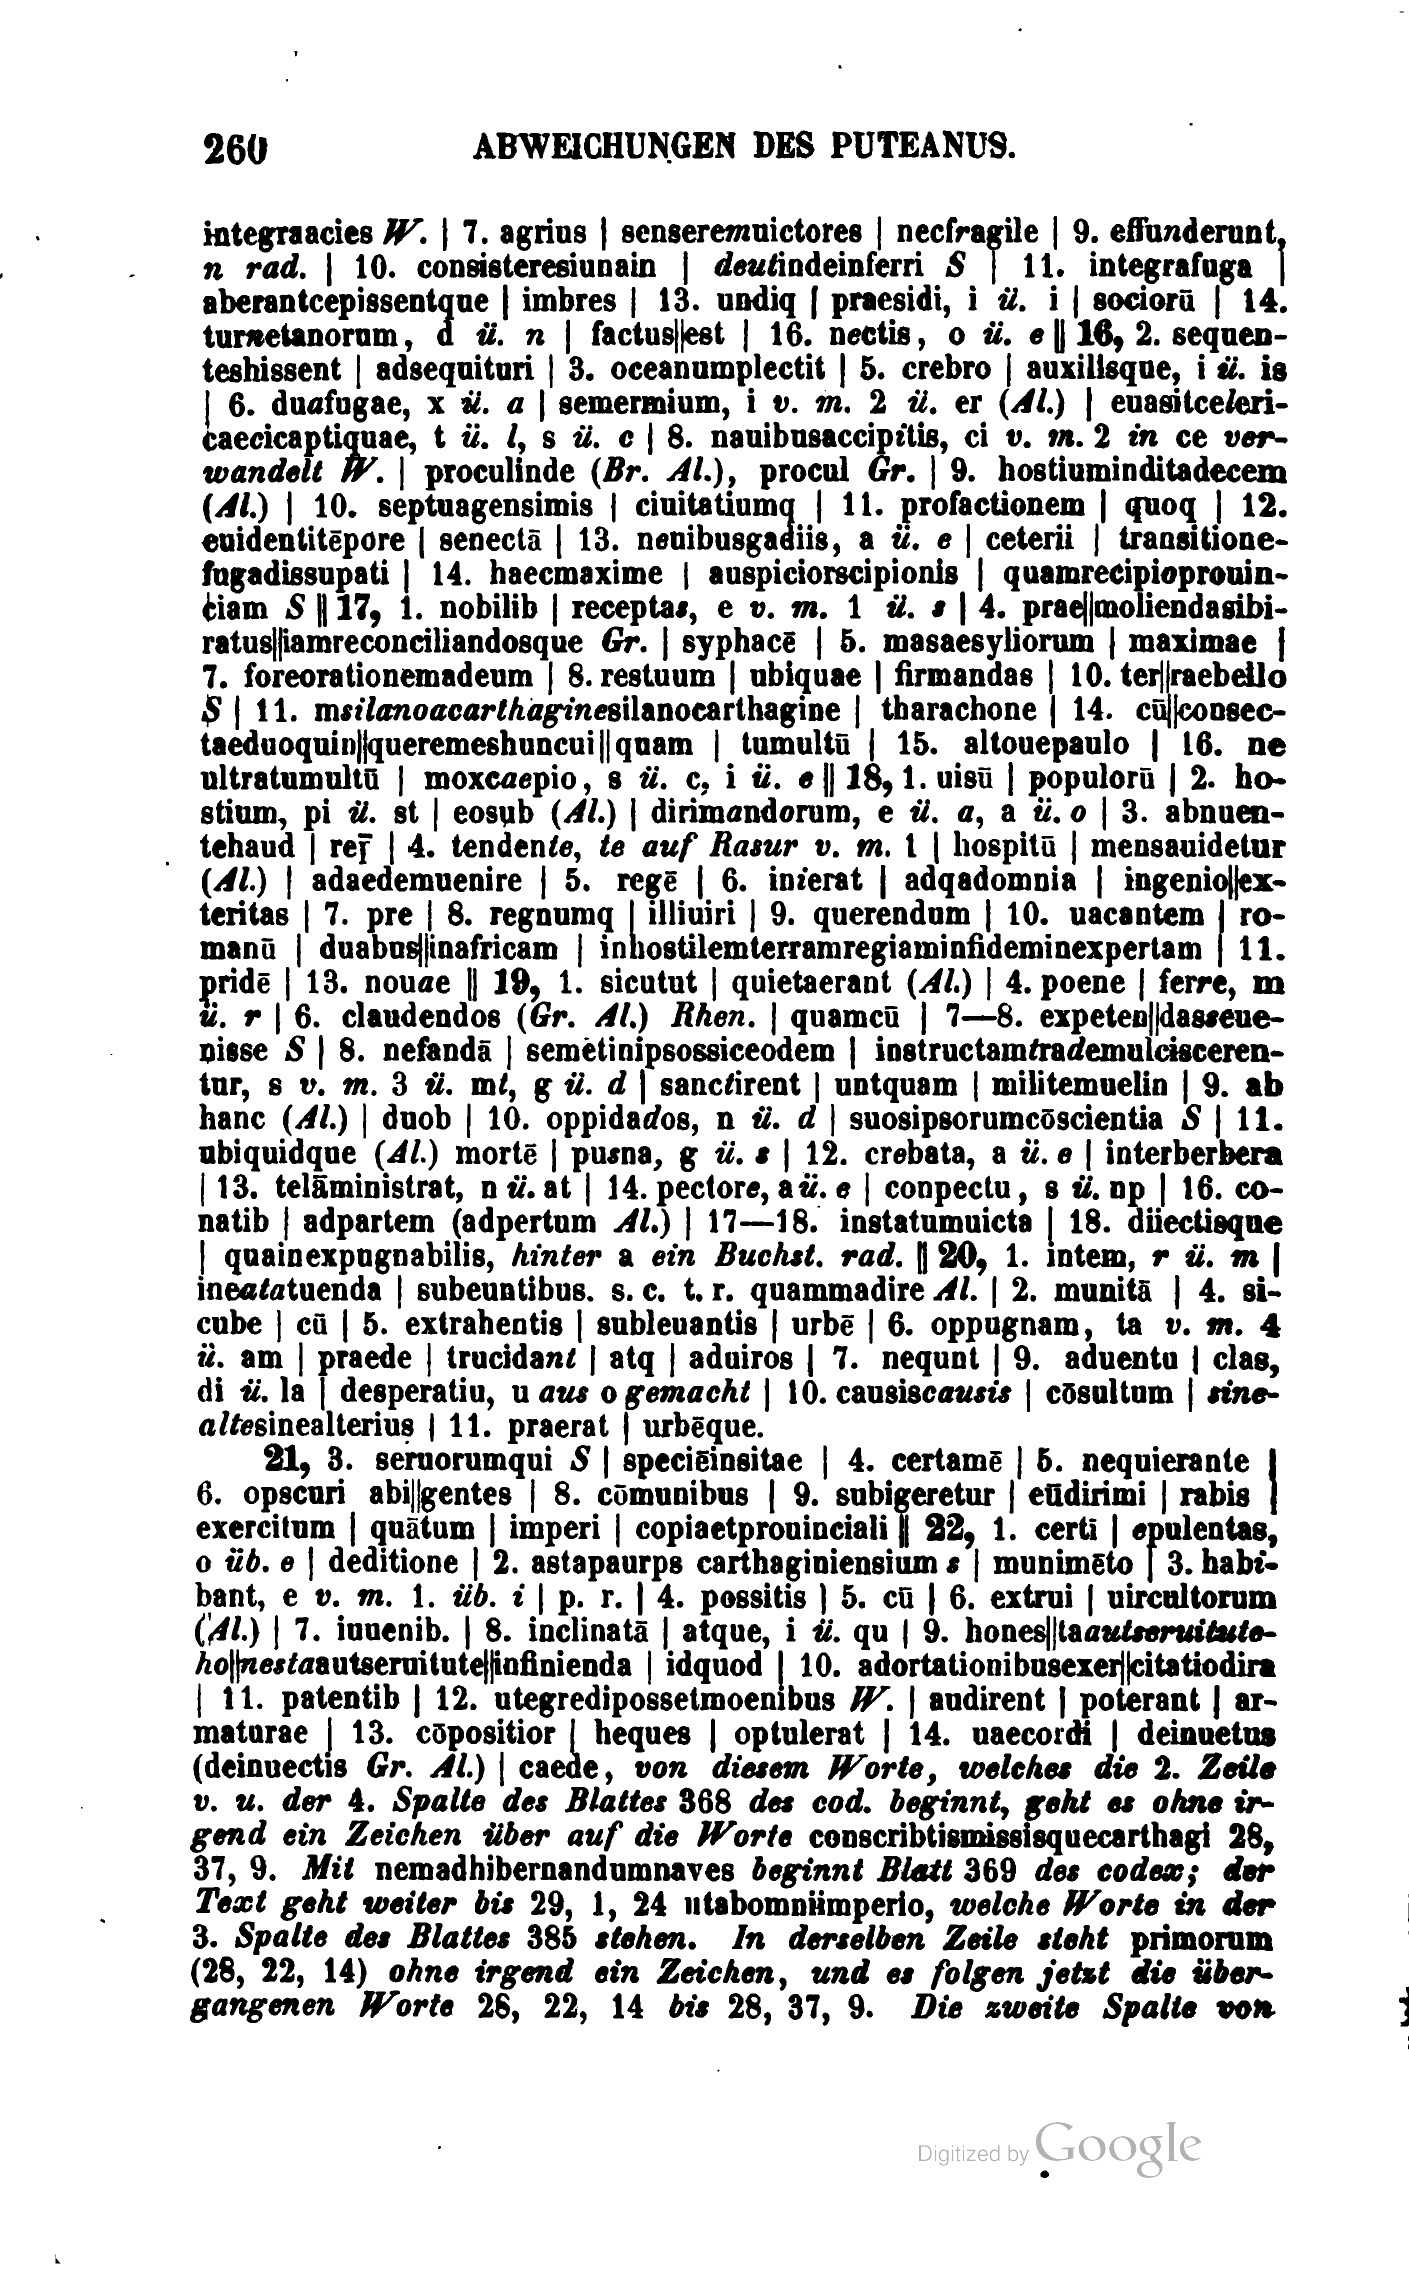 260 ABWEICHUNGEN DES PUTEANUS.
integraacies W. | 7. agrius | senseremuictores | necfragile | 9. effunderunt,
n rad. | 10. consisteresiunain | deutindeinferri S | 11. integrafuga |
aberantcepissentque | imbres | 13. undiq | praesidi, i ü. i | sociorū | 14.
turnetanorum, d ü. n | factus||est | 16. nectis, o ü. e || 16, 2. sequen-
teshissent | adsequituri | 3. oceanumplectit | 5. crebro | auxilisque, i ü. is
| 6. duafugae, x ü. a | semermium, i v. m. 2 ü. er (Al.) | euasitceleri-
caecicaptiquae, t ü. l, s ü. c | 8. nauibusaccipitis, ci v. m. 2 in ce ver-
wandelt W. | proculinde (Br. Al.), procul Gr. | 9. hostiuminditadecem
(Al.) | 10. septuagensimis | ciuitatiumq | 11. profactionem | quoq | 12.
euidentitēpore | senectā | 13. neuibusgadiis, a ü. e | ceterii | transitione-
fugadissupati | 14. haecmaxime | auspiciorscipionis | quamrecipioprouin-
ciam S || 17, 1. nobilib | receptas, e v. m. 1 ü. s | 4. prae||moliendasibi-
ratus||iamreconciliandosque Gr. | syphacē | 5. masaesyliorum | maximae |
7. foreorationemadeum | 8. restuum | ubiquae | firmandas | 10. ter||raebello
S | 11. msilanoacarthaginesilanocarthagine | tharachone | 14. cū||consec-
taeduoquin||queremeshuncui||quam | tumultū | 15. altouepaulo | 16. ne
ultratumultū | moxcaepio, s ü. c, i ü. e || 18, 1. uisū | populorū | 2. ho-
stium, pi ü. st | eosub (Al.) | dirimandorum, e ü. a, a ü. o | 3. abnuen-
tehaud | rer̄ | 4. tendente, te auf Rasur v. m. 1 | hospitū | mensauidetur
(Al.) | adaedemuenire | 5. regē | 6. inierat | adqadomnia | ingenio||ex-
teritas | 7. pre | 8. regnumq | illiuiri | 9. querendum | 10. uacantem | ro-
manū | duabus||inafricam | inhostilemterramregiaminfideminexpertam | 11.
pridē | 13. nouae || 19, 1. sicutut | quietaerant (Al.) | 4. poene | ferre, m
ü. r | 6. claudendos (Gr. Al.) Rhen. | quamcū | 7—8. expeten||dasseue-
nisse S | 8. nefandā | semetinipsossiceodem | instructamtrademulcisceren-
tur, s v. m. 3 ü. mt, g ü. d | sanctirent | untquam | militemuelin | 9. ab
hanc (Al.) | duob | 10. oppidados, n ü. d | suosipsorumcōscientia S | 11.
ubiquidque (Al.) mortē | pusna, g ü. s | 12. crebata, a ü. e | interberbera
| 13. telāministrat, n ü. at | 14. pectore, a ü. e | conpectu, s ü. np | 16. co-
natib | adpartem (adpertum Al.) | 17—18. instatumuicta | 18. diiectisque
| quainexpugnabilis, hinter a ein Buchst. rad. || 20, 1. intem, r ü. m |
ineatatuenda | subeuntibus. s. c. t. r. quammadire Al. | 2. munitā | 4. si-
cube | cū | 5. extrahentis | subleuantis | urbē | 6. oppugnam, ta v. m. 4
ü. am | praede | trucidant | atq | aduiros | 7. nequnt | 9. aduentu | clas,
di ü. la | desperatiu, u aus o gemacht | 10. causiscausis | cōsultum | sine-
altesinealterius | 11. praerat | urbēque.
21, 3. seruorumqui S | speciēinsitae | 4. certamē | 5. nequierante |
6. opscuri abi||gentes | 8. cōmunibus | 9. subigeretur | eūdirimi | rabis |
exercitum | quātum | imperi | copiaetprouinciali || 22, 1. certi | epulentas,
o üb. e | deditione | 2. astapaurps carthaginiensium s | munimēto | 3. habi-
bant, e v. m. 1. üb. i | p. r. | 4. possitis | 5. cū | 6. extrui | uircultorum
(Al.) | 7. iuuenib. | 8. inclinatā | atque, i ü. qu | 9. hones||taautseruitute-
ho||nestaautseruitute||infinienda | idquod | 10. adortationibusexer||citatiodira
| 11. patentib | 12. utegredipossetmoenibus W. | audirent | poterant | ar-
maturae | 13. cōpositior | heques | optulerat | 14. uaecordi | deinuetus
(deinuectis Gr. Al.) | caede, von diesem Worte, welches die 2. Zeile
v. u. der 4. Spalte des Blattes 368 des cod. beginnt, geht es ohne ir-
gend ein Zeichen über auf die Worte conscribtismissisquecarthagi 28,
37, 9. Mit nemadhibernandumnaves beginnt Blatt 369 des codex; der
Text geht weiter bis 29, 1, 24 utabomniimperio, welche Worte in der
3. Spalte des Blattes 385 stehen. In derselben Zeile steht primorum
(28, 22, 14) ohne irgend ein Zeichen, und es folgen jetzt die über-
gangenen Worte 28, 22, 14 bis 28, 37, 9. Die zweite Spalte von
Digitized by Google